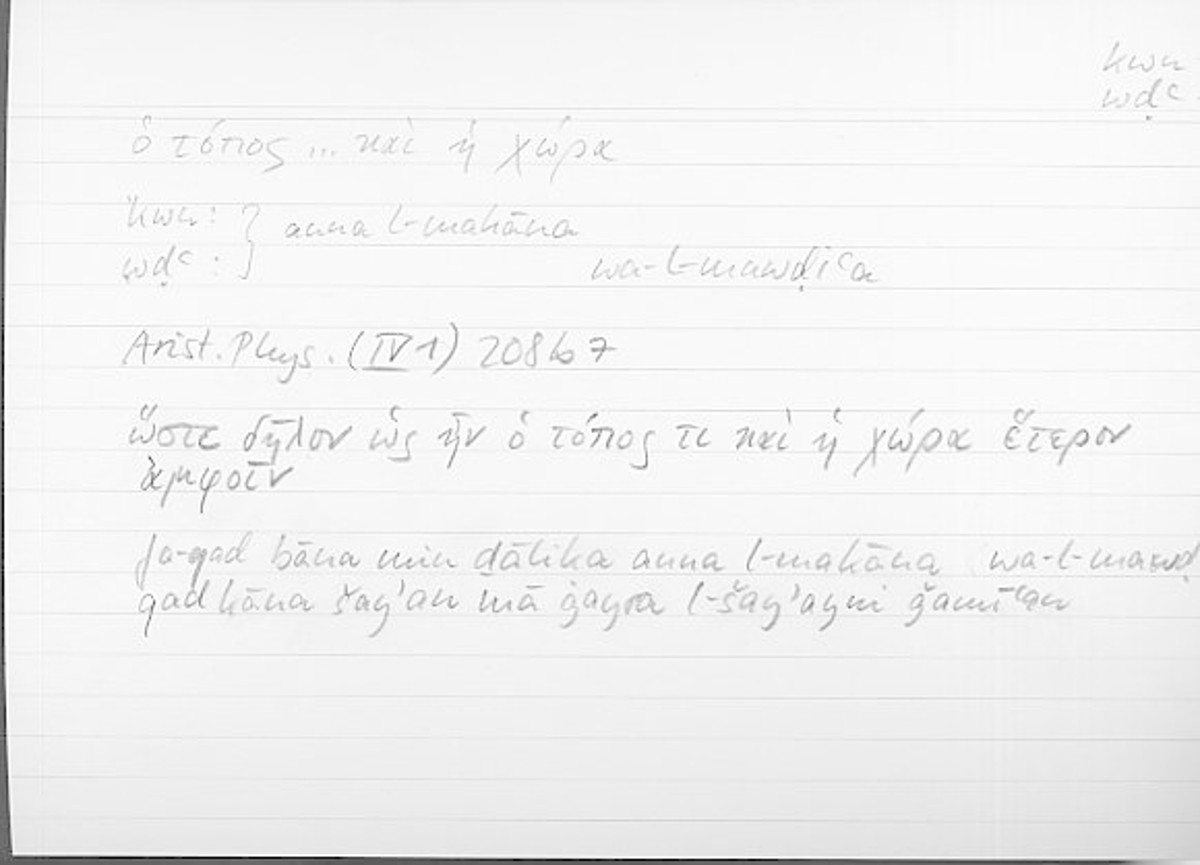 kwn
wḍʿ
ὁ τόπος ... καὶ ἡ χώρα
kwn: } anna l-makāna
wḍʿ : } wa-l-mawḍiʿa
Arist. Phys. (IV 1) 208 b 7
ὥστε δῆλον ὡς ἦν ὁ τόπος τι καὶ ἡ χώρα ἕτερον
ἀμφοῖν
fa-qad bāna min ḏālika anna l-makāna wa-l-mawḍ
qad kāna šayʾan mā ġayra l-šayʾayni ǧamīʿan